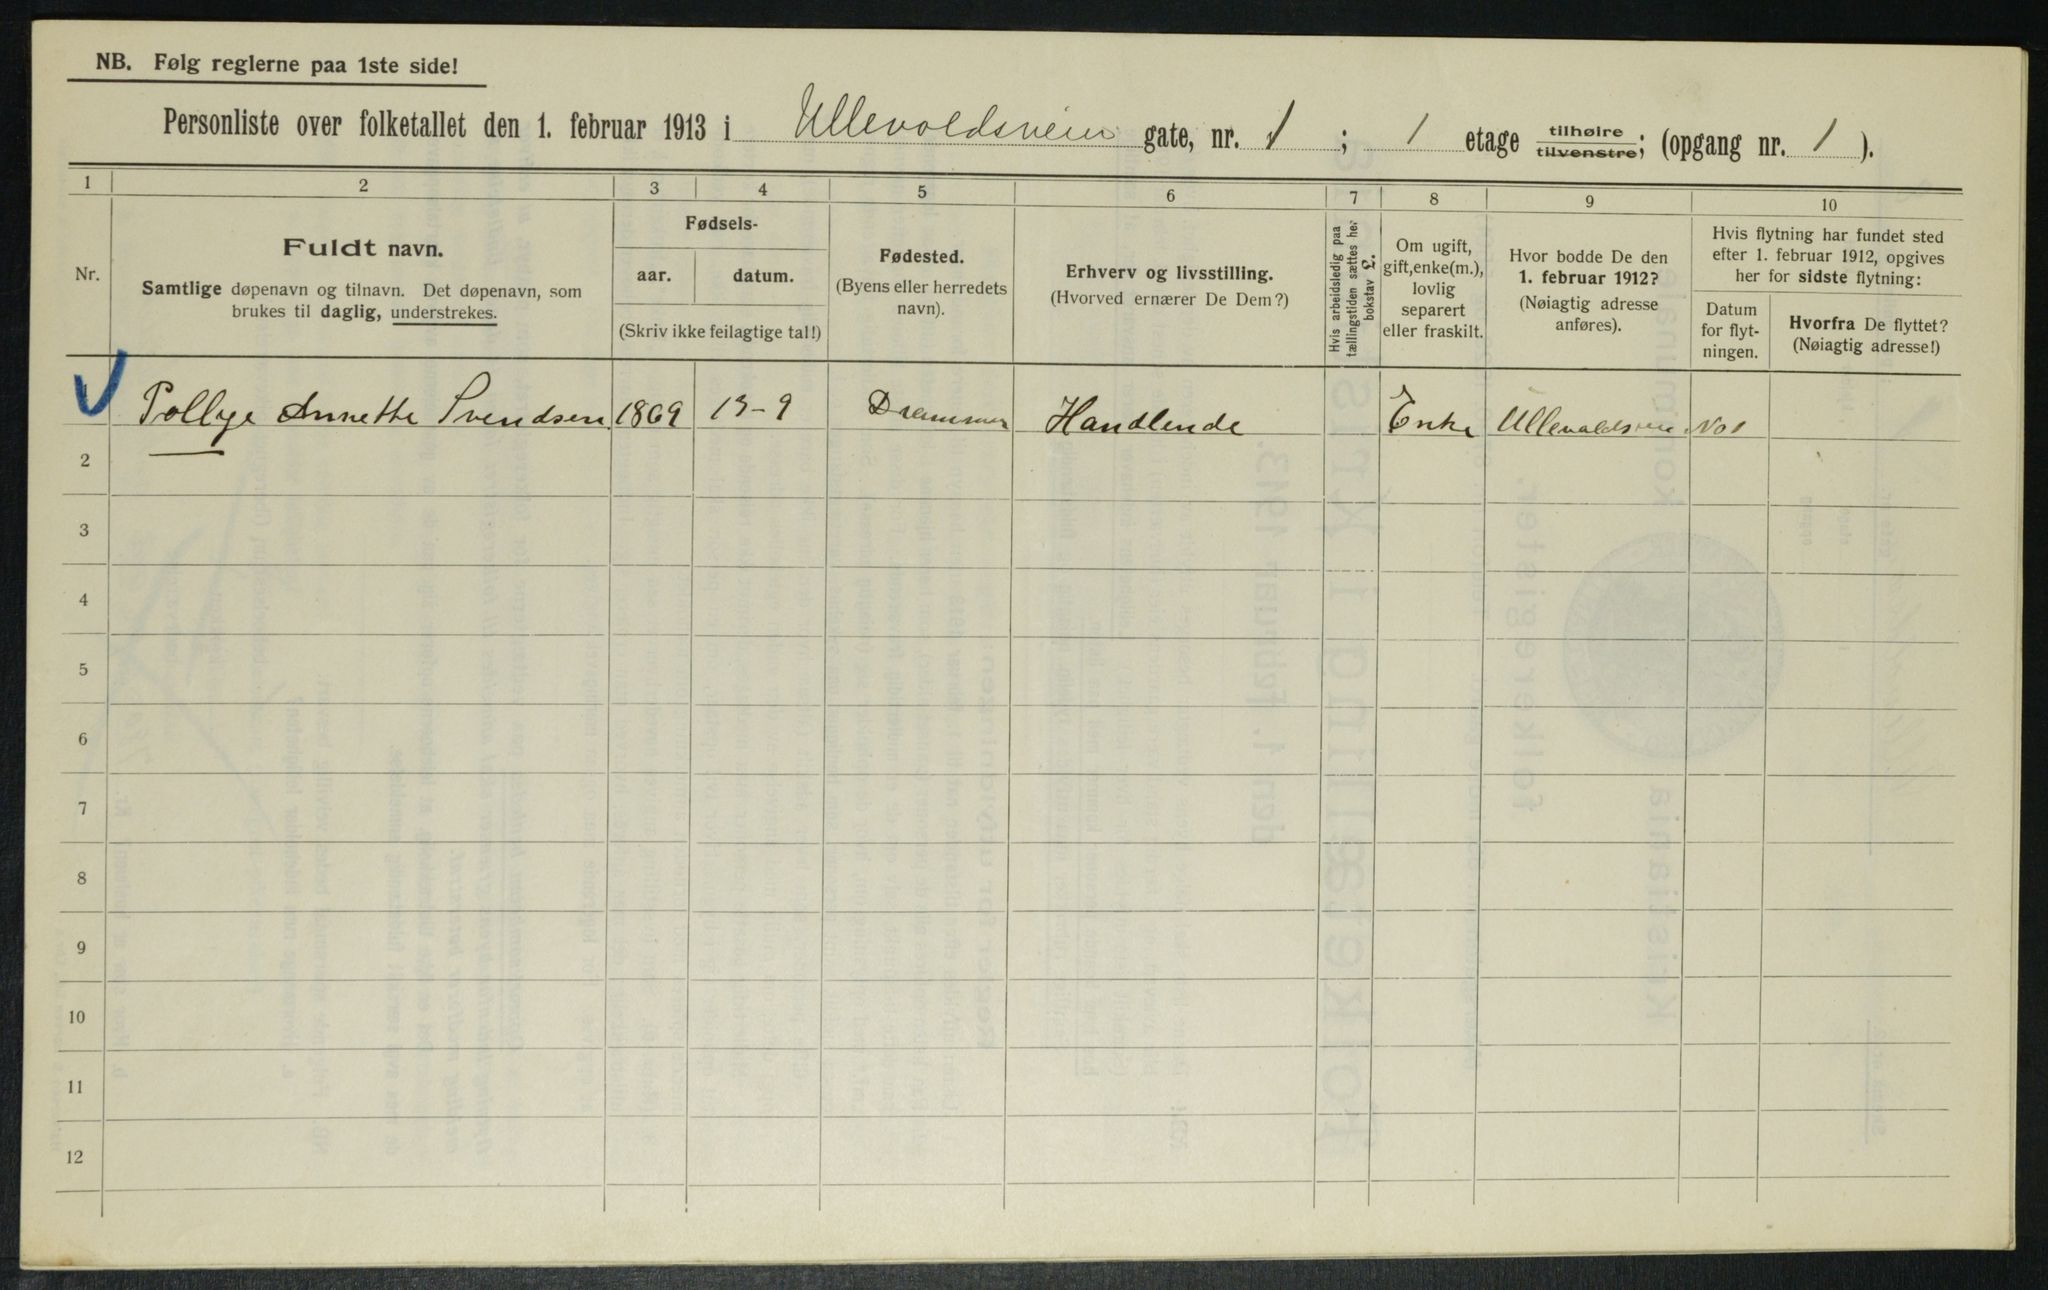 NB. Følg reglerne paa 1ste side!
Personliste over folketallet den 1. februar 1913 i Ullevoldsveien gate, nr. 1 ; 1 etage tilhøire tilvenstre; (opgang nr. 1 ).
1 2 3 4 5 6 7 8 9 10
Nr.
Fuldt navn.
Samtlige døpenavn og tilnavn. Det døpenavn, som
brukes til daglig, understrekes.
Fødsels-
aar. datum.
(Skriv ikke feilagtige tal!)
Fødested.
(Byens eller herredets
navn).
Erhverv og livsstilling.
(Hvorved ernærer De Dem?)
Hvis arbeidsledig paa
tællingstiden sættes her
bokstav L.
Om ugift,
gift, enke(m.),
lovlig
separert
eller fraskilt.
Hvor bodde De den
1. februar 1912?
(Nøiagtig adresse
anføres).
Hvis flytning har fundet sted
efter 1. februar 1912, opgives
her for sidste flytning:
Datum
for flyt-
ningen.
Hvorfra De flyttet?
(Nøiagtig adresse!)
Annette Svendsen 1869 13-9 Drammen Handlende Enke Ullevoldsveien No 1
2
3
4
5
6
7
8
9
10
11
12